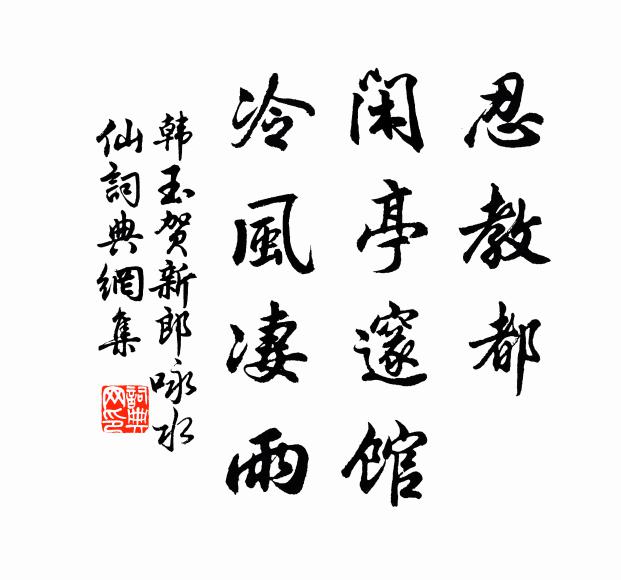 忍教都
閑亭邃館
冷風凄雨
韩玉賀新郎咏水
仙詞典網集
詞典
网印